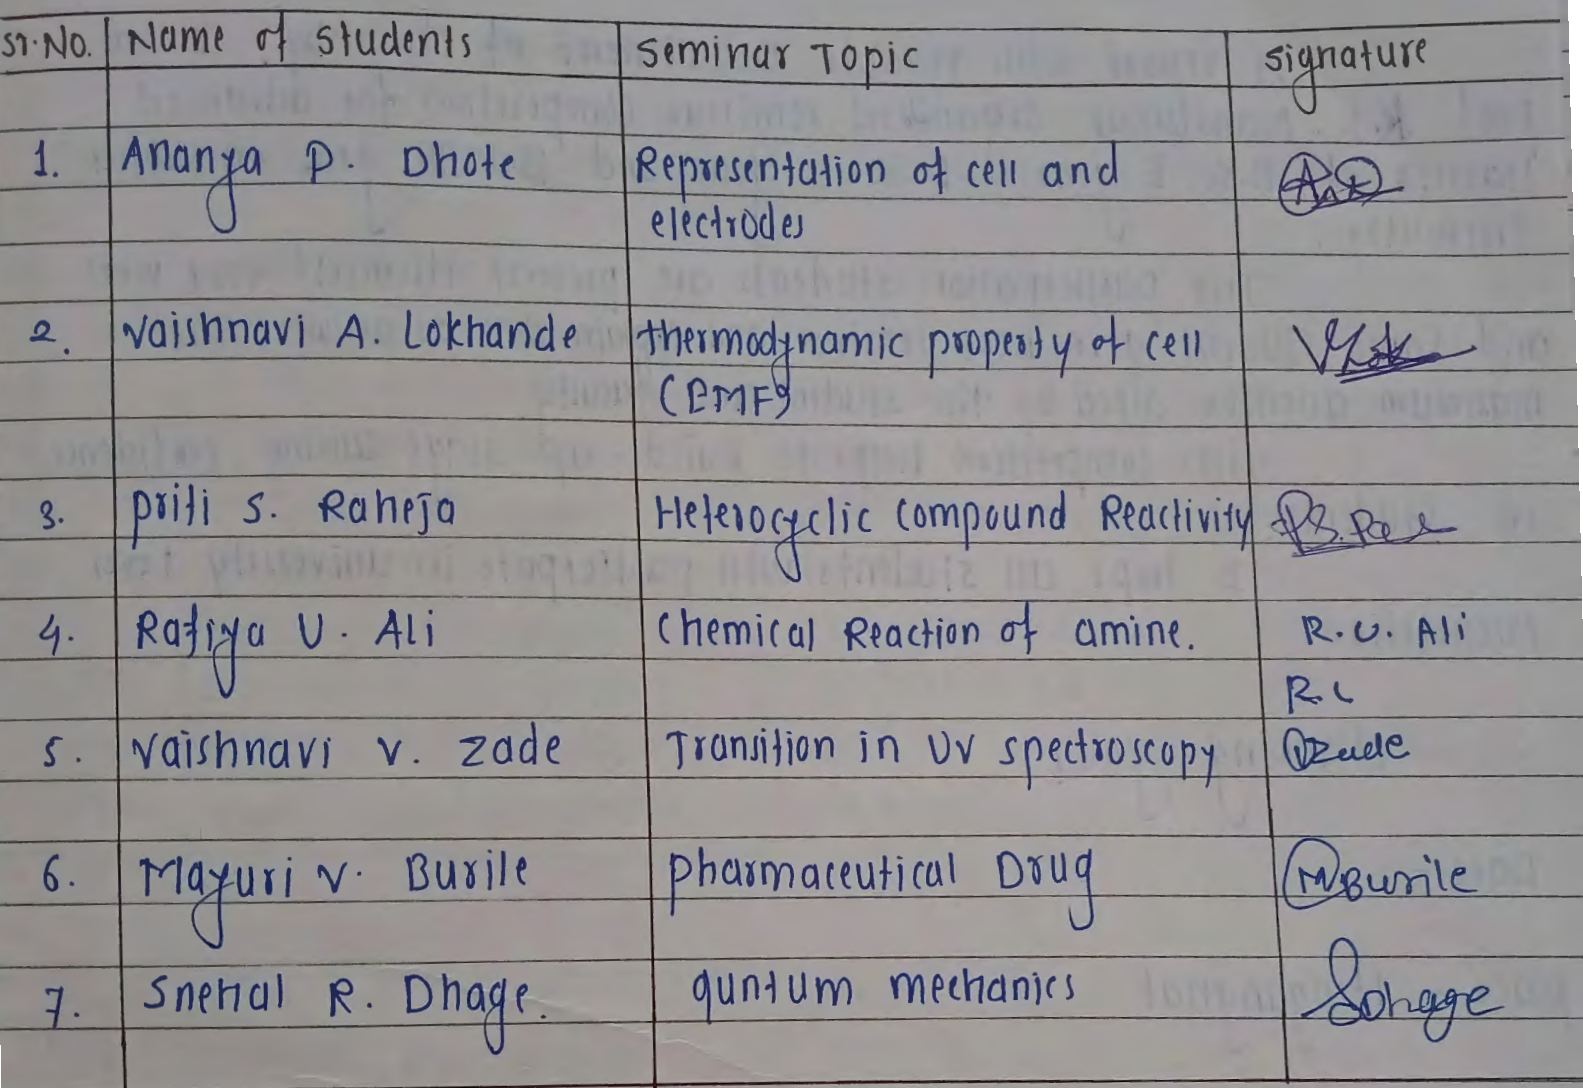 Sr.No. Name of Students Seminar Topic Signature
1. Ananya P. Dhote Representation of cell and
electrodes
2. Vaishnavi A. Lokhande thermodynamic property of cell
(EMF)
3. priti s. Raheja Heterocyclic compound Reactivity
4. Rafiya U. Ali Chemical Reaction of amine. R.U. Ali
5. Vaishnavi v. zade Transition in UV spectroscopy Vzade
6. Mayuri v. Burile pharmaceutical Drug MBurile
7. Snehal R. Dhage. quntum mechanics SDhage